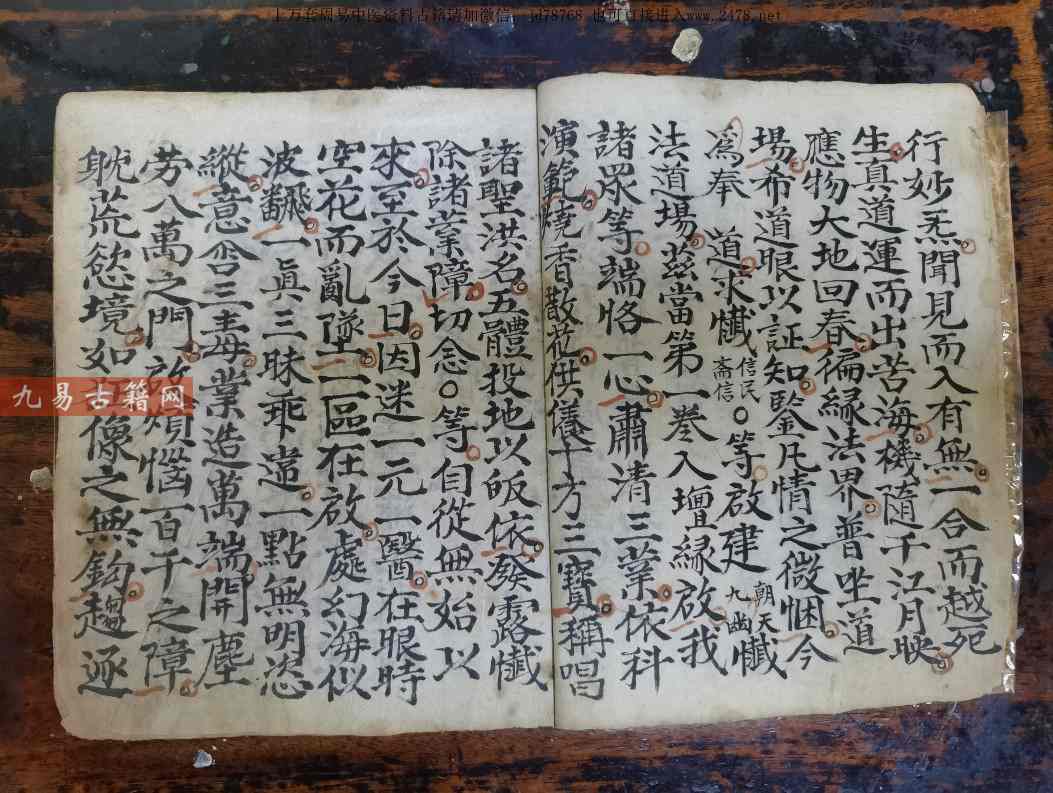 上万套网易中医资料古籍请加微信: jd78768 也可直接进入www.2478.net
行妙炁聞見而入有無一合而越死
生真道運而出苦海機隨千江月映
應物大地回春徧緣法界普坐道
場希道眼以証知鑒凡情之微悃今
為奉 道求懺 信民 斎信 ○等啟建 朝天 九幽 懺
法道場茲當第一卷入壇緣啟我
諸眾等端恪一心肅清三業依科
演範燒香散花供養十方三寶稱唱
諸聖洪名五體投地以皈依發露懺
除諸業障切念○等自從無始以
來至於今日因迷一元一翳在眼時
空花而亂墜二區在啟處幻海似
波飜一真三昧乖違一點無明恣
縱意含三毒業造萬端開塵
劳八萬之門啟煩惱百千之障
躭荒慾境如 像之無鈎趨逐
九易古籍网